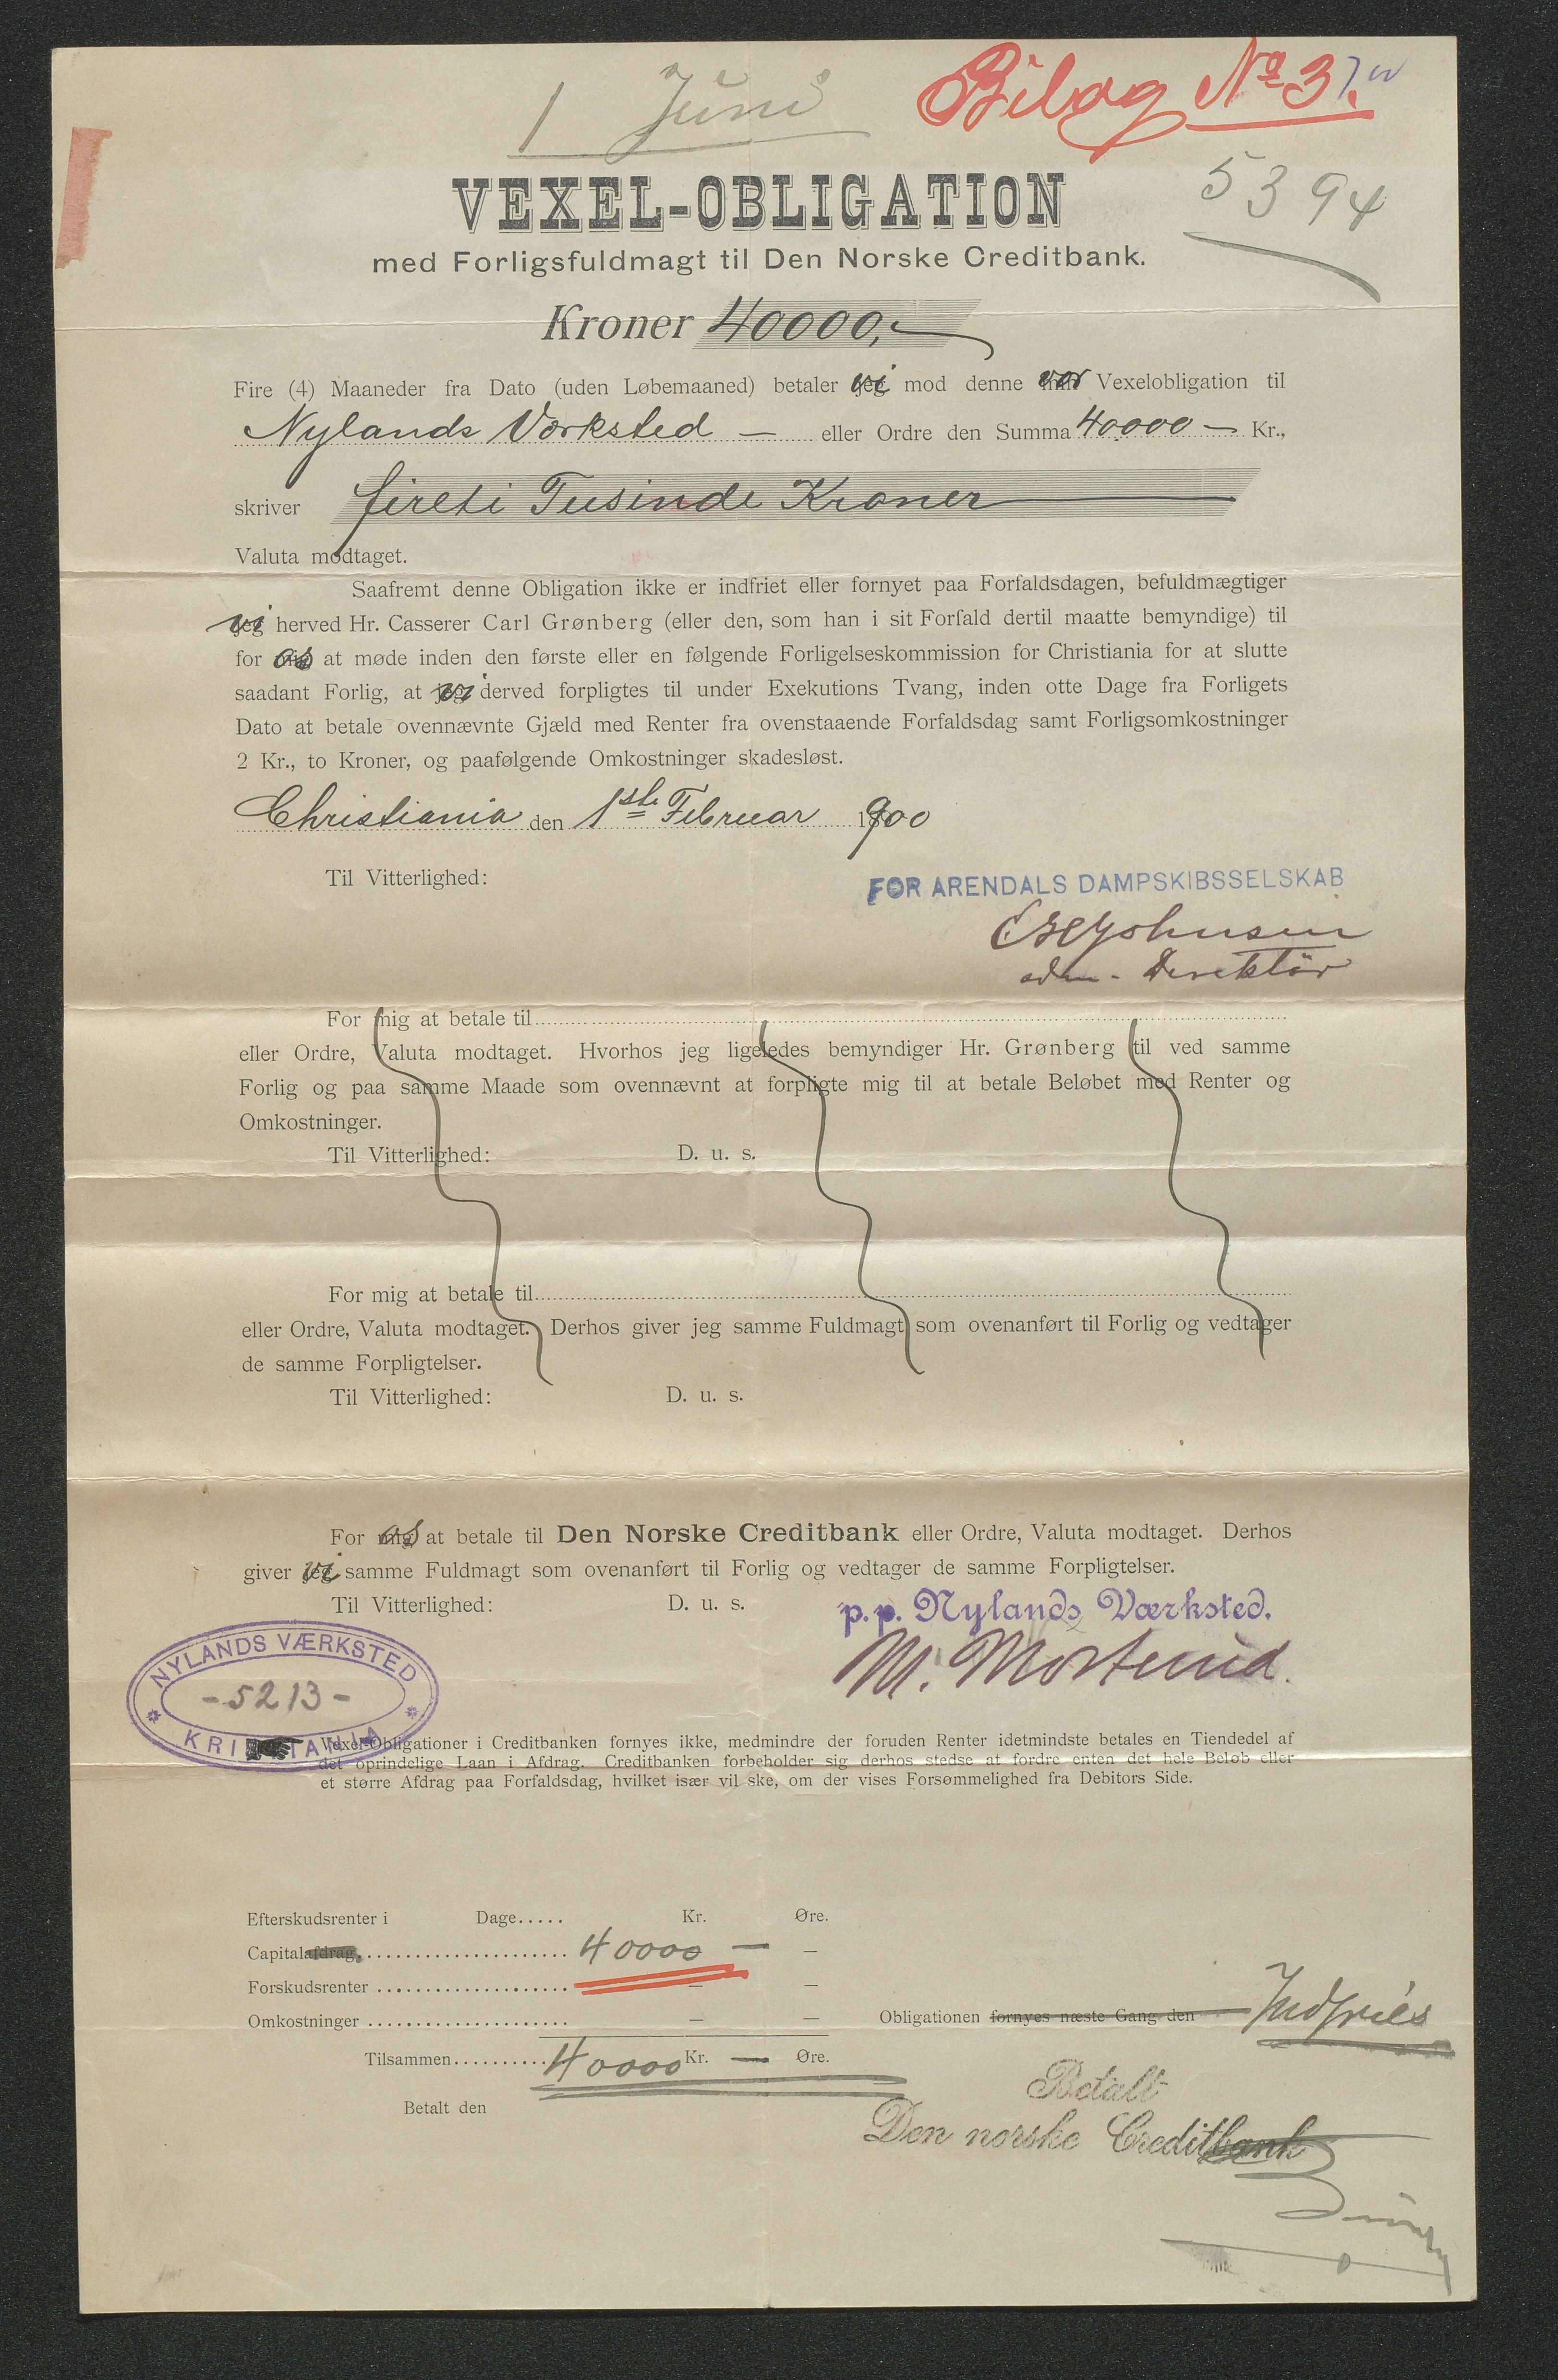 1 Juni
Bilag No 3.
5394
VEXEL-OBLIGATION
med Forligsfuldmagt til Den Norske Creditbank.
Kroner 40000,-
Fire (4) Maaneder fra Dato (uden Løbemaaned) betaler vi mod denne vor Vexelobligation til
Nylands Værksted — eller Ordre den Summa 40000 — Kr.,
skriver fireti Tusinde Kroner
Valuta modtaget.
Saafremt denne Obligation ikke er indfriet eller fornyet paa Forfaldsdagen, befuldmægtiger
vi herved Hr. Casserer Carl Grønberg (eller den, som han i sit Forfald dertil maatte bemyndige) til
for os at møde inden den første eller en følgende Forligelseskommission for Christiania for at slutte
saadant Forlig, at vi derved forpligtes til under Exekutions Tvang, inden otte Dage fra Forligets
Dato at betale ovennævnte Gjæld med Renter fra ovenstaaende Forfaldsdag samt Forligsomkostninger
2 Kr., to Kroner, og paafølgende Omkostninger skadesløst.
Christiania den 1ste Februar 1900
Til Vitterlighed:
FOR ARENDALS DAMPSKIBSSELSKAB
adm. Direktör
For mig at betale til
eller Ordre, Valuta modtaget. Hvorhos jeg ligeledes bemyndiger Hr. Grønberg til ved samme
Forlig og paa samme Maade som ovennævnt at forpligte mig til at betale Beløbet med Renter og
Omkostninger.
Til Vitterlighed: D. u. s.
For mig at betale til
eller Ordre, Valuta modtaget. Derhos giver jeg samme Fuldmagt som ovenanført til Forlig og vedtager
de samme Forpligtelser.
Til Vitterlighed: D. u. s.
For os at betale til Den Norske Creditbank eller Ordre, Valuta modtaget. Derhos
giver vi samme Fuldmagt som ovenanført til Forlig og vedtager de samme Forpligtelser.
Til Vitterlighed: D. u. s.
p.p. Nylands Værksted.
NYLANDS VÆRKSTED
-5213-
KRISTIANIA
Vexel-Obligationer i Creditbanken fornyes ikke, medmindre der foruden Renter idetmindste betales en Tiendedel af
det oprindelige Laan i Afdrag. Creditbanken forbeholder sig derhos stedse at fordre enten det hele Beløb eller
et større Afdrag paa Forfaldsdag, hvilket især vil ske, om der vises Forsømmelighed fra Debitors Side.
Efterskudsrenter i Dage..... Kr. Øre.
Capitalafdrag, 40000 — —
Forskudsrenter — —
Omkostninger — —
Obligationen fornyes næste Gang den Indfries
Tilsammen 40000 Kr. — Øre.
Betalt den
Betalt
Den norske Creditbank